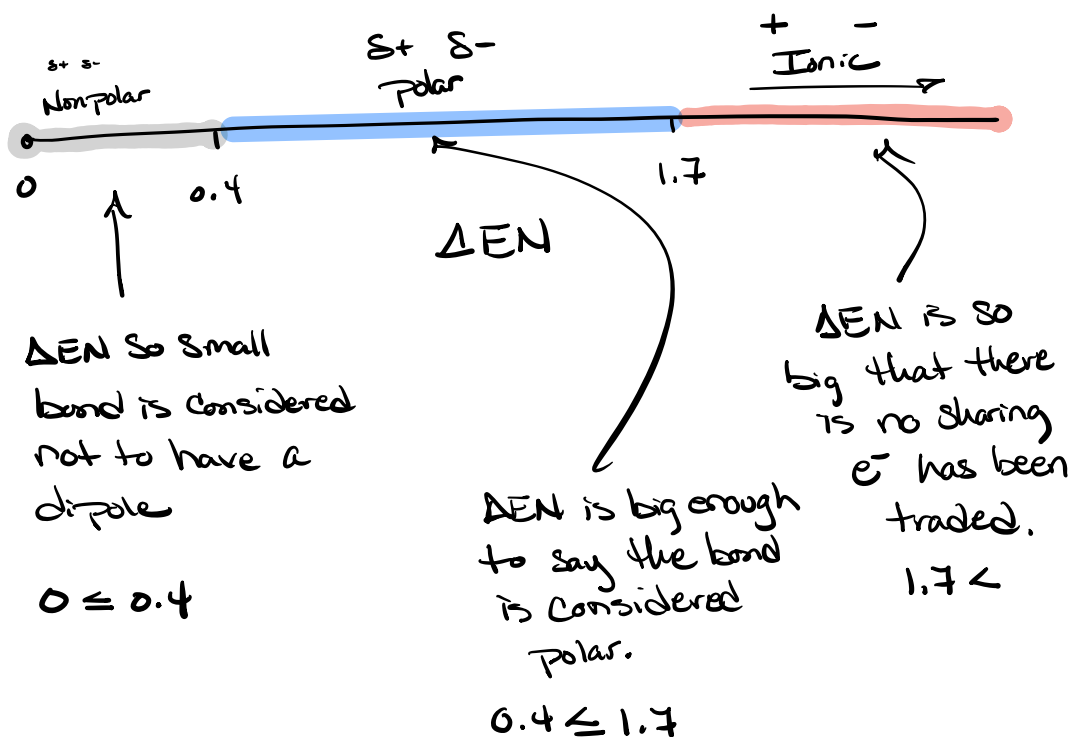 δ+ δ-
Nonpolar
δ+ δ-
polar
+ -
Ionic
0
0.4
1.7
ΔEN
ΔEN so small
bond is considered
not to have a
dipole
0 ≤ 0.4
ΔEN is big enough
to say the bond
is considered
polar.
0.4 ≤ 1.7
ΔEN is so
big that there
is no sharing
e⁻ has been
traded.
1.7 <